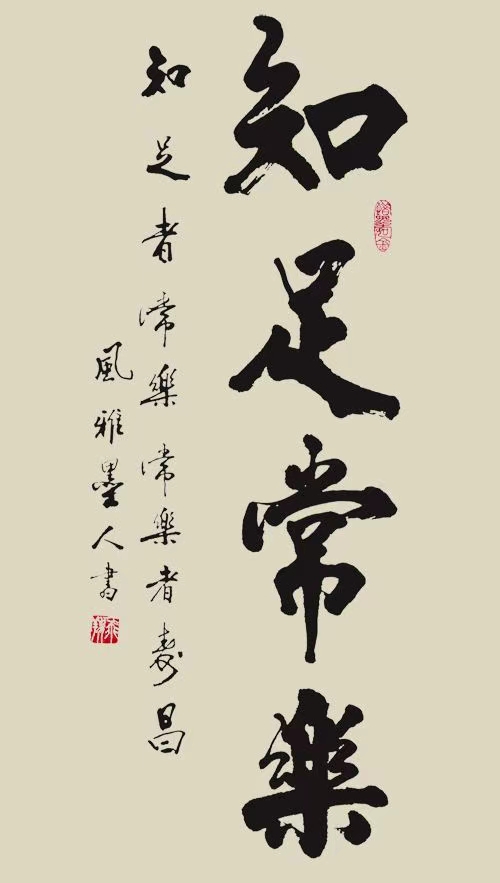 知足常樂
知足者常樂常樂者壽昌
風雅墨人書